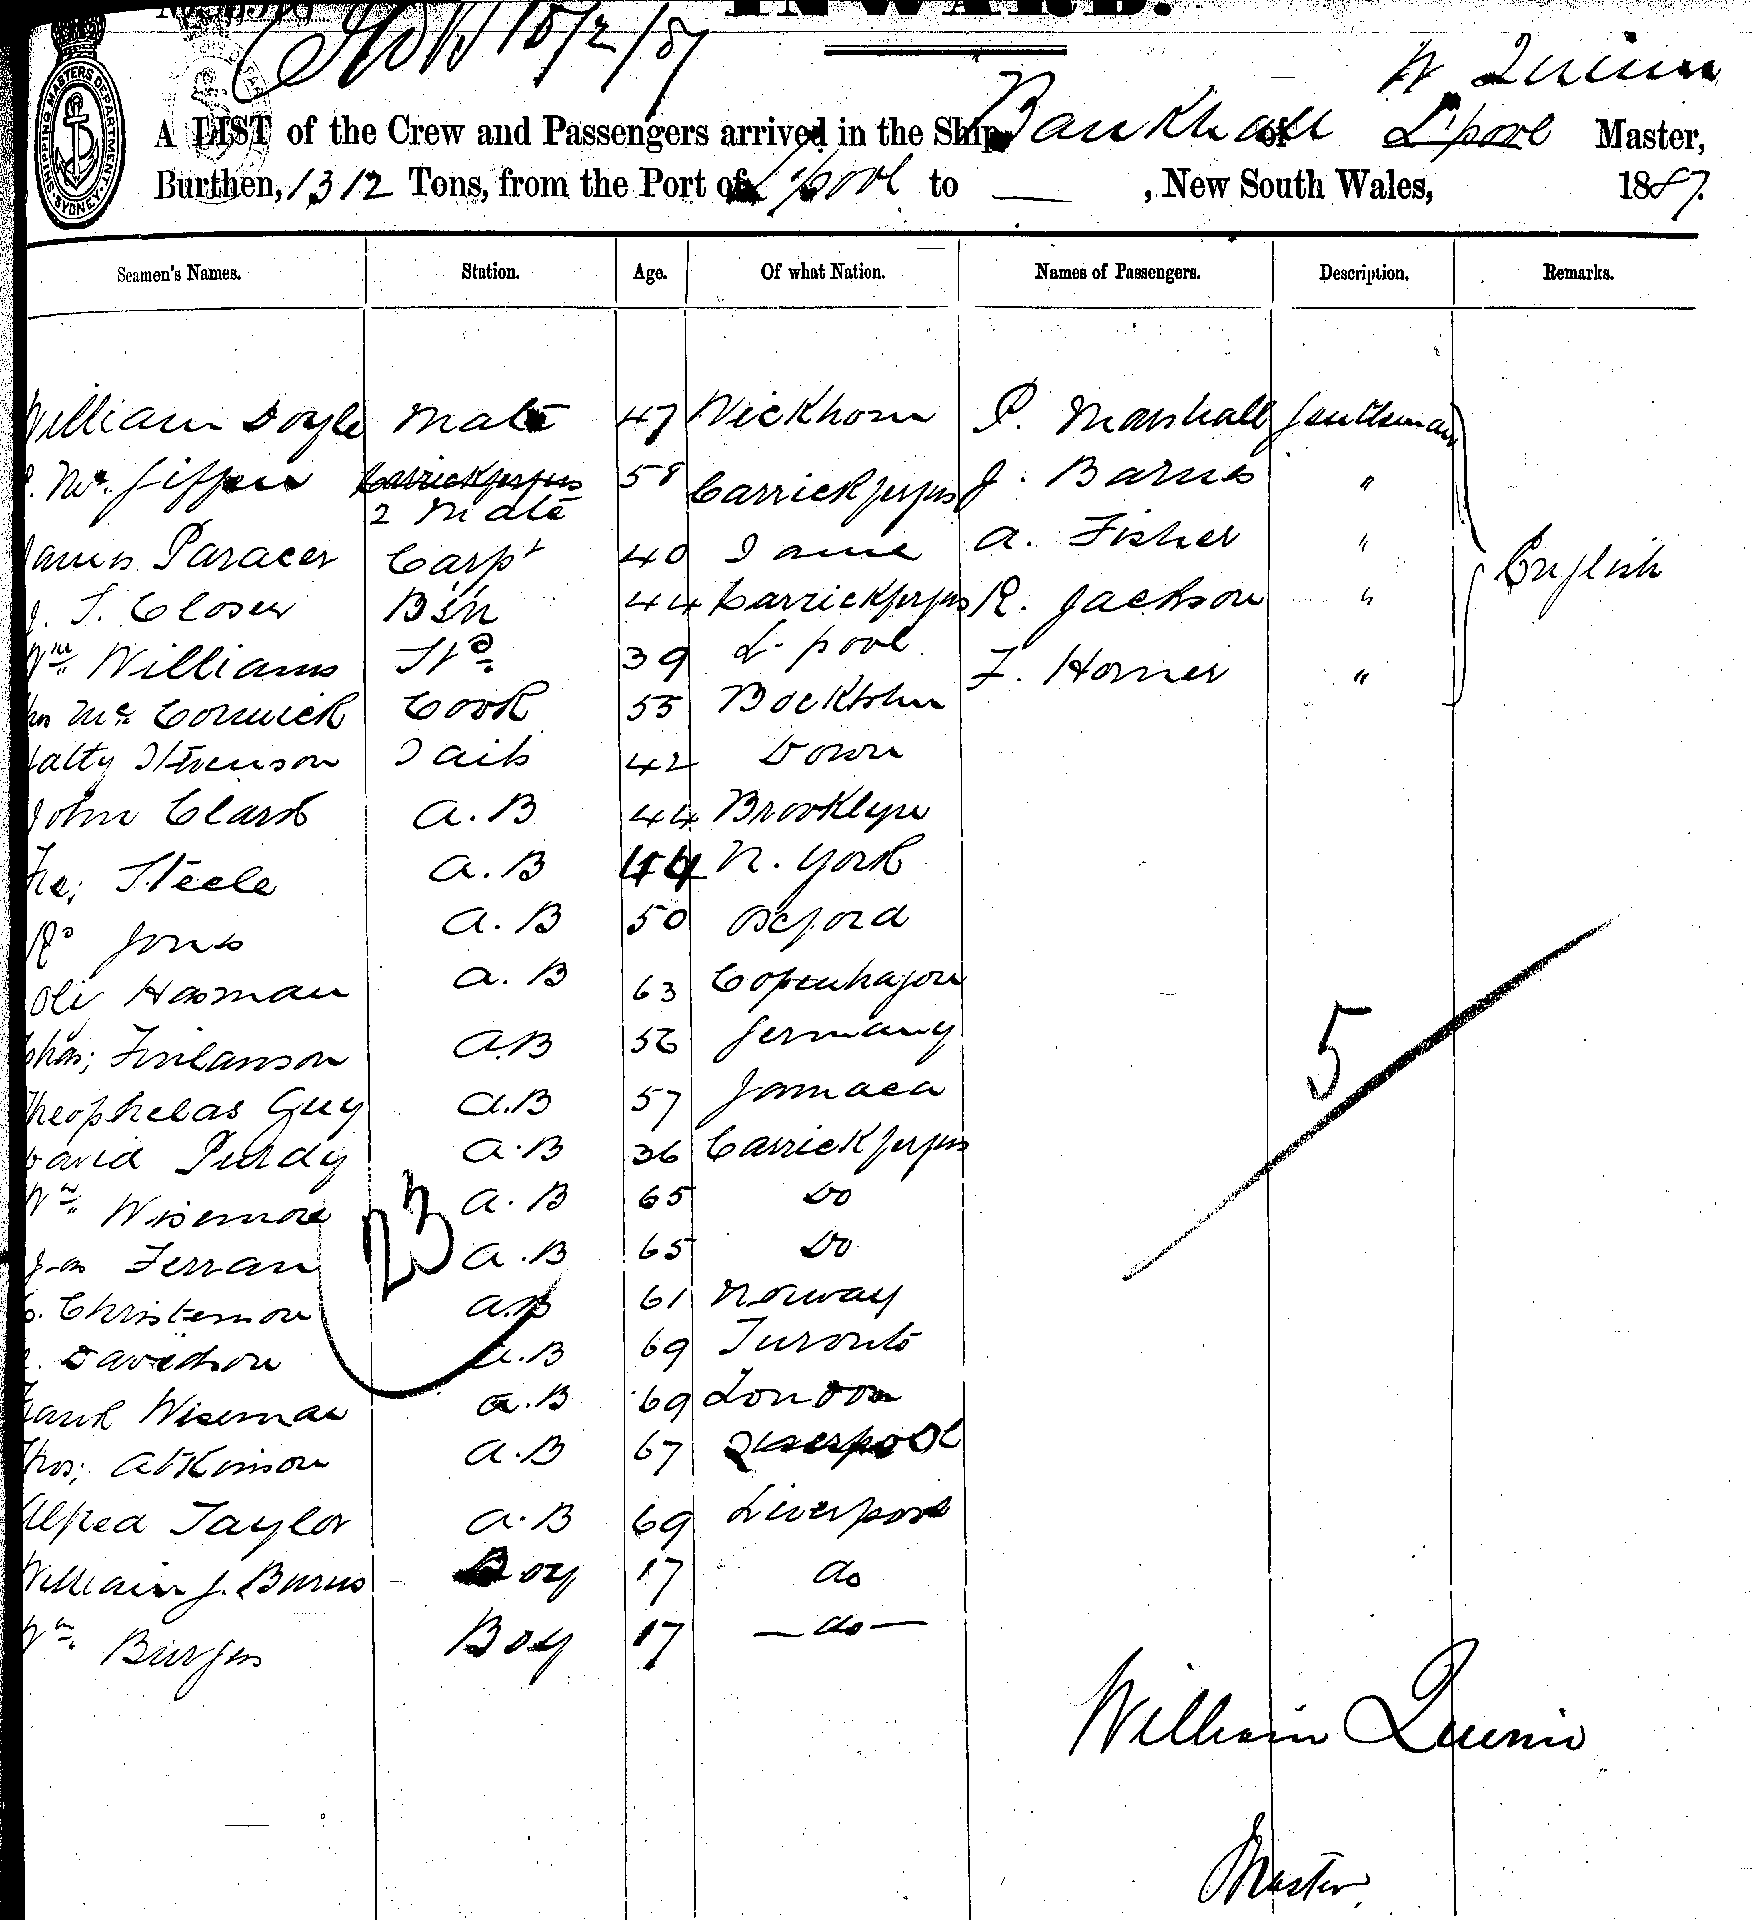 INWARD.
15/2/87
W Quinn
SHIPPING MASTERS DEPARTMENT SYDNEY
A LIST of the Crew and Passengers arrived in the Ship Bankhall of L'pool Master,
Burthen, 1312 Tons, from the Port of L'pool to — , New South Wales, 1887.
Seamen's Names. Station. Age. Of what Nation. Names of Passengers. Description. Remarks.
William Doyle Mate 47 P. Marshall Gentleman
Carrickfergus 58 Carrickfergus J. Barnes "
2 Mate
James Carpt 40 A. Fisher "
English
J. T. Closer Bsn 44 Carrickfergus R. Jackson "
Wm Williams Std 39 L. pool F. Horner "
Mc Cormick Cook 55
Stevenson Sails 42 Down
John Clark A.B 44 Brooklyn
Steele A.B 44 N. York
Ro Jones A.B 50 Oxford
Ole Hasman A.B 63 Copenhagen
Chas; Finlanson A.B 56 Germany
5
Theophelas Guy A.B 57 Jamaca
David Purdy A.B 36 Carrickfergus
Wm Wisemore A.B 65 Do
23
Jas Ferran A.B 65 Do
C. Christenson A.B 61 Norway
Davidson A.B 69 Turonto
Frank Wiseman A.B 69 London
Thos; Atkinson A.B 67 Liverpool
Alfred Taylor A.B 69 Liverpool
William J. Burns Boy 17 do
Wm Burges Boy 17 — do —
William Quinn
Master